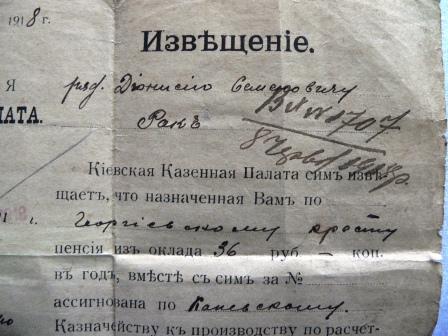 1918 г.
Извѣщеніе.
Я
ряд. Діонисію Семеновичу
ЛАТА.
Ракъ
Кіевская Казенная Палата симъ извѣ-
щаетъ, что назначенная Вамъ по
1 г.
Георгіевскому кресту
пенсія изъ оклада 36 руб. – коп.
въ годъ, вмѣстѣ съ симъ за №
ассигнована по Каневскому
Казначейству къ производству по расчет-